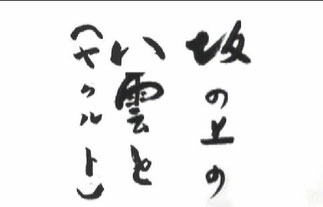 坂の上の
八雲と
（ヤクルト）